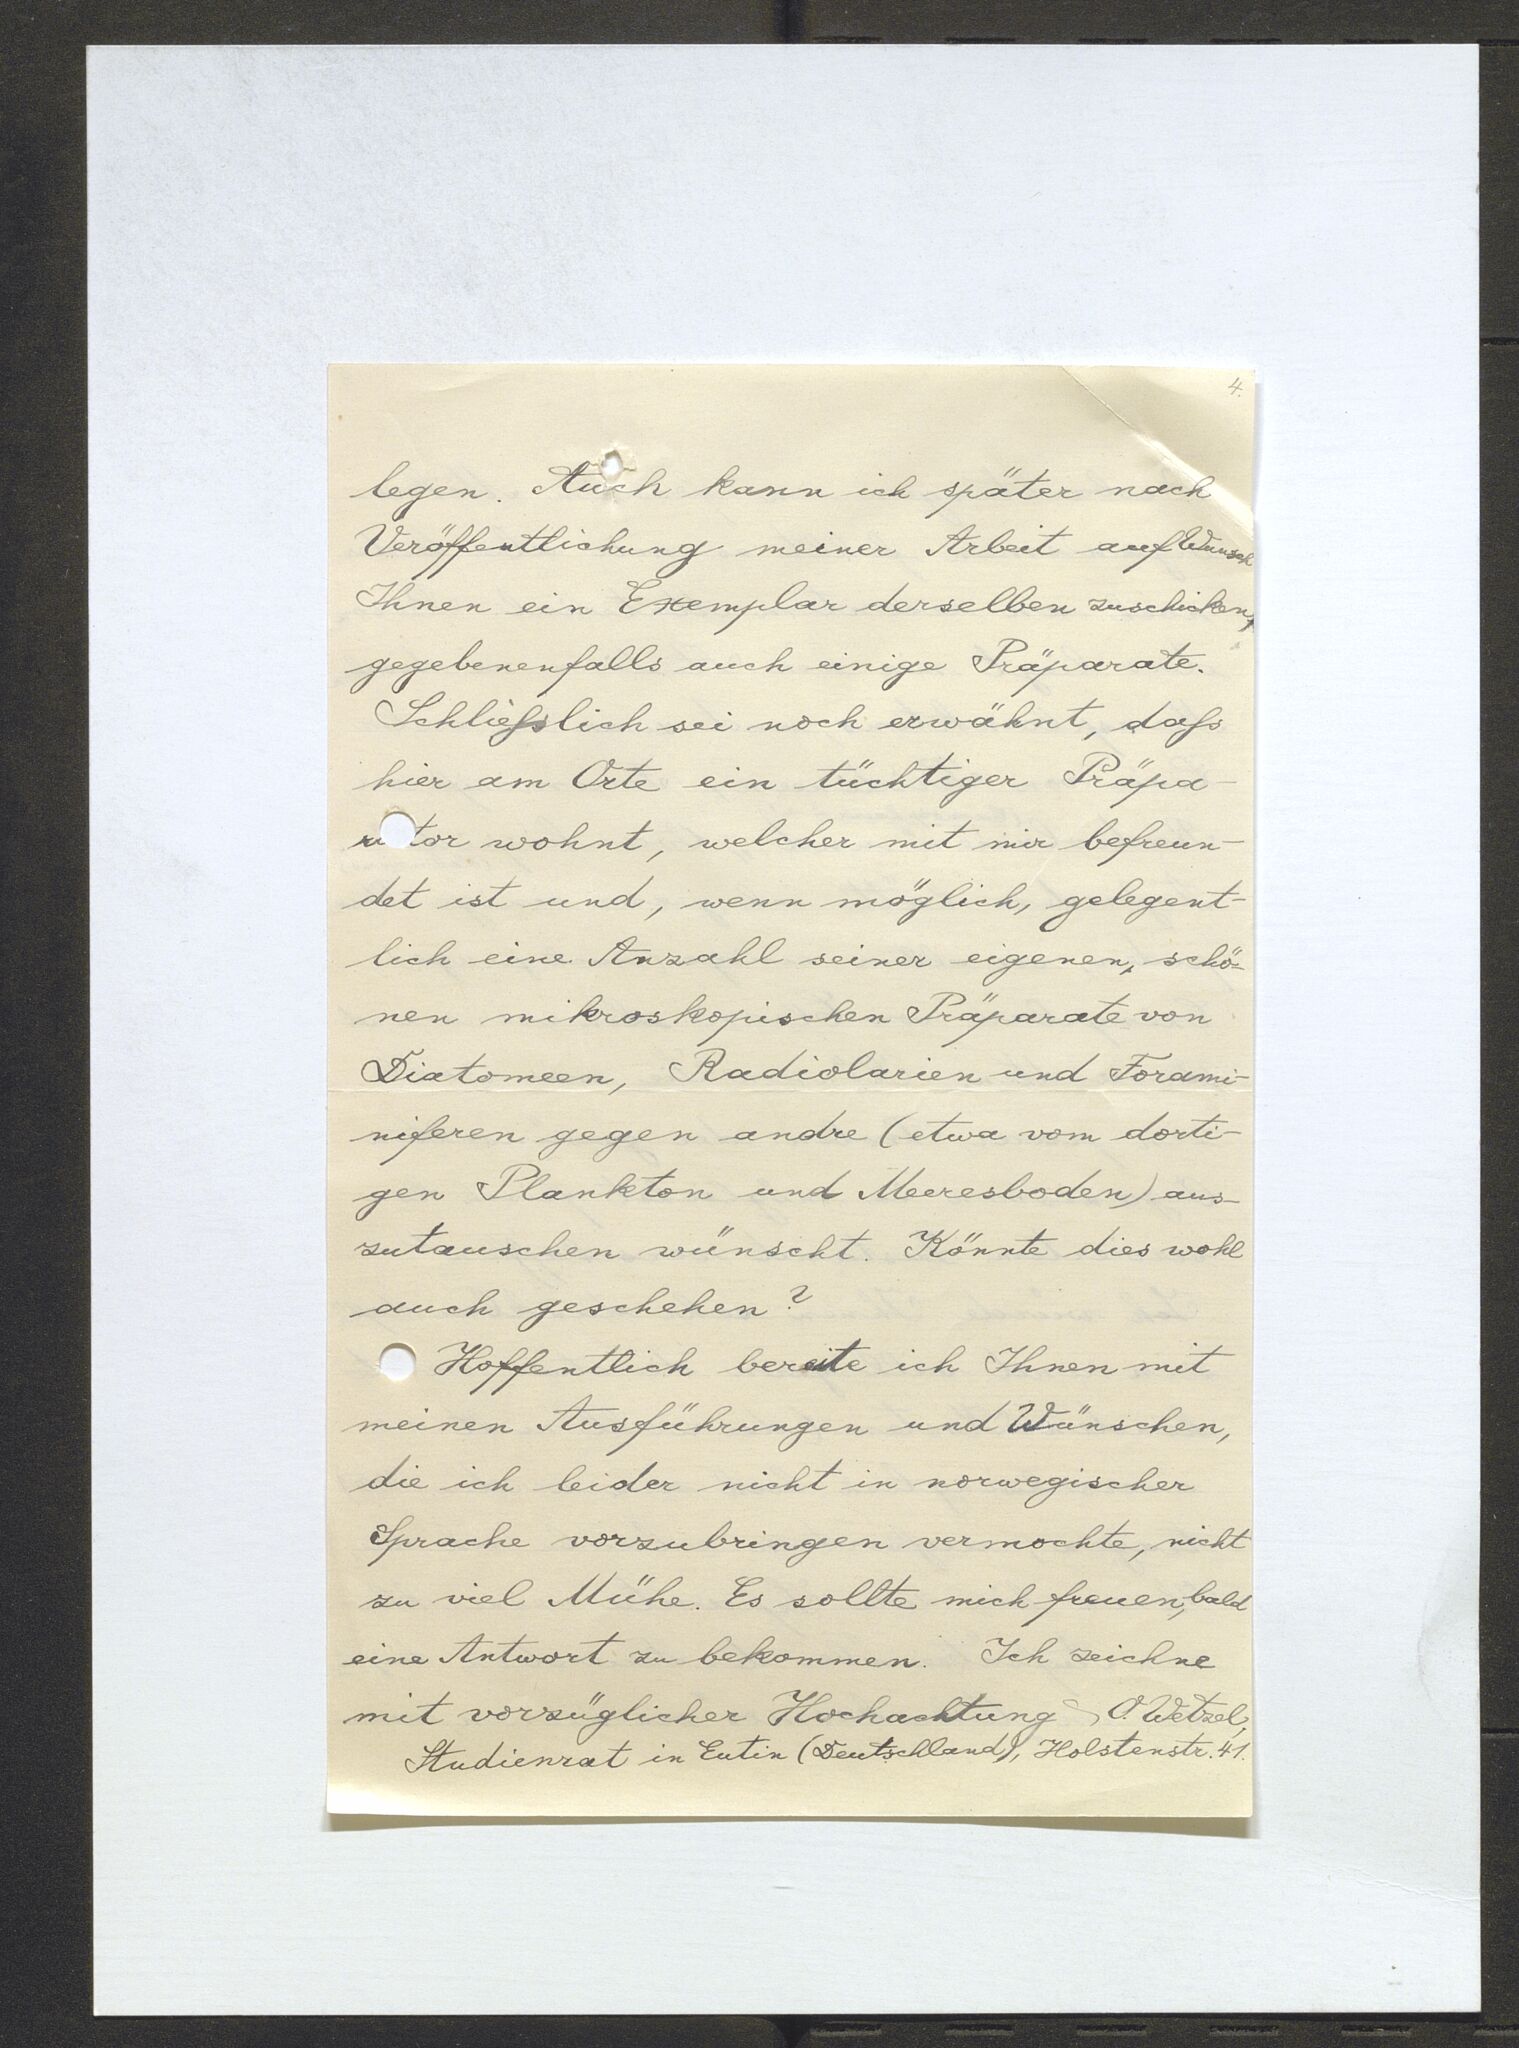 4.
legen. Auch kann ich später nach
Veröffentlichung meiner Arbeit auf Wunsch
Ihnen ein Exemplar derselben zuschicken,
gegebenenfalls auch einige Präparate.
Schließslich sei noch erwähnt, dafs
hier am Orte ein tüchtiger Präpa-
rator wohnt, welcher mit mir befreun-
det ist und, wenn möglich, gelegent-
lich eine Anzahl seiner eigenen, schö-
nen mikroskopischen Präparate von
Diatomeen, Radiolarien und Forami-
niferen gegen andre (etwa vom dorti-
gen Plankton und Meeresboden) aus-
zutauschen wünscht. Könnte dies wohl
auch geschehen?
Hoffentlich bereite ich Ihnen mit
meinen Ausführungen und Wünschen,
die ich leider nicht in norwegischer
Sprache vorzubringen vermochte, nicht
zu viel Mühe. Es sollte mich freuen, bald
eine Antwort zu bekommen. Ich zeichne
mit vorzüglicher Hochachtung, O. Wetzel,
Studienrat in Eutin (Deutschland), Holstenstr. 41.